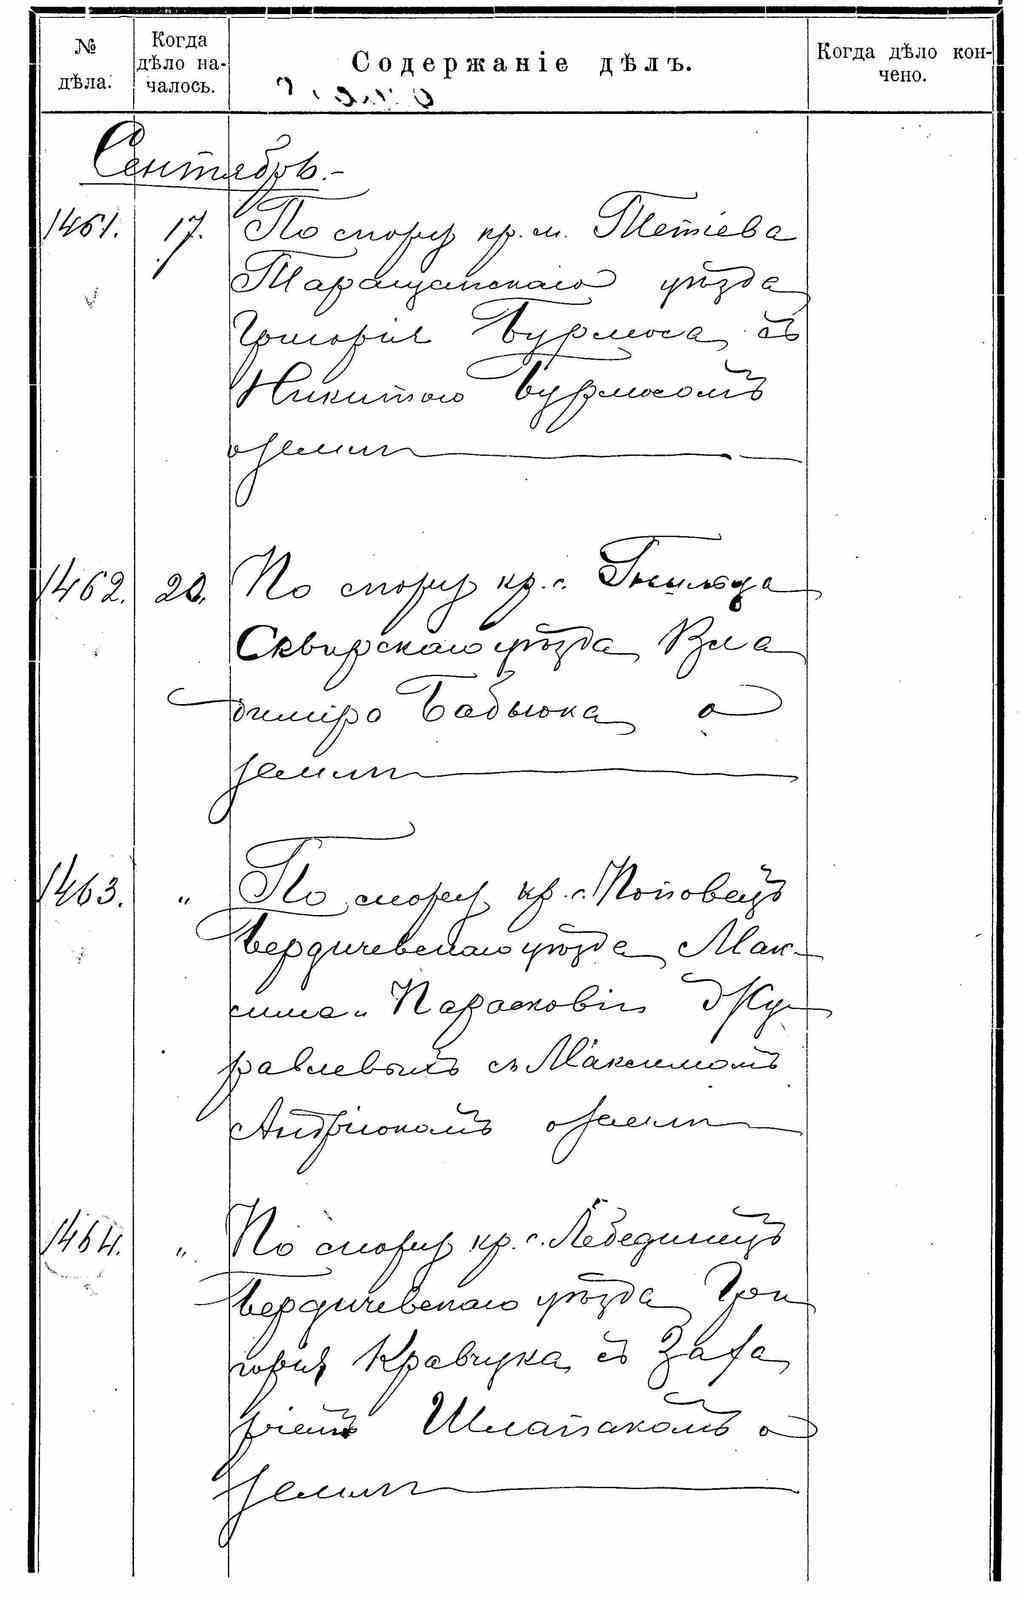 № дѣла.
Когда дѣло началось.
Содержаніе дѣлъ.
Когда дѣло кончено.
Сентябрь.
1461. 17. По спору кр. м. Тетіева
Таращанскаго уѣзда
Григорія Бурмоса съ
Никитою Бурмосомъ
о земли
1462. 20. По спору кр. с. Гнильца
Сквирскаго уѣзда Вла
диміра Бабьюка о
земли
1463. " По спору кр. с. Поповецъ
Бердичевскаго уѣзда Мак-
сима и Парасковіи Жу
равлевыхъ съ Максимомъ
Андріюкомъ о земли
1464. " По спору кр. с. Лебединецъ
Бердичевскаго уѣзда Гри
горія Кравчука съ Заха
ріемъ Шлапакомъ о
земли